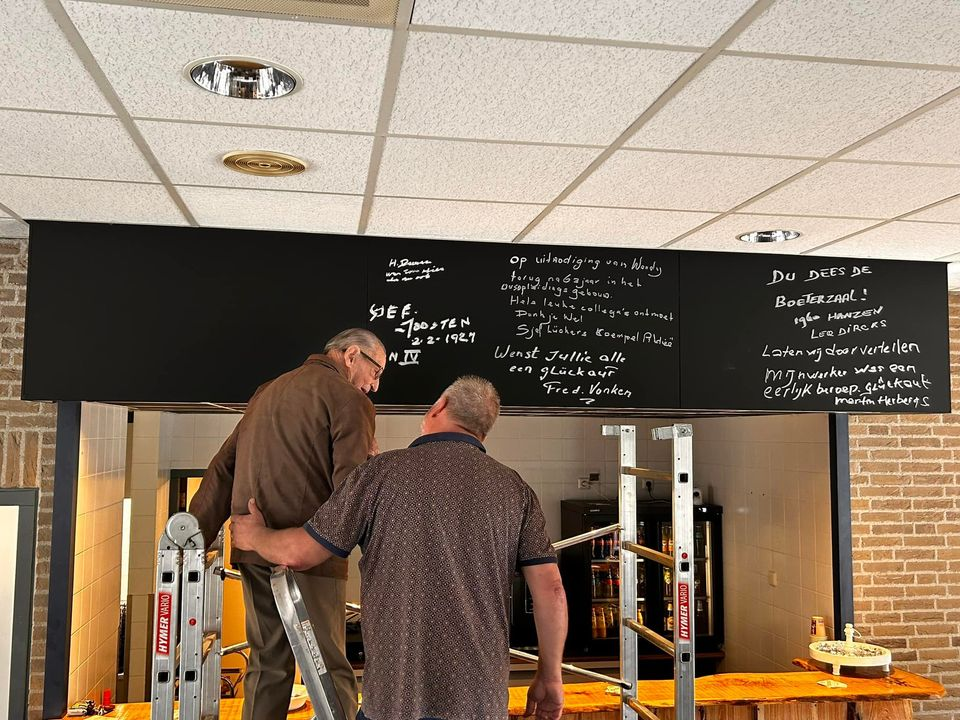 Op uitnodiging van Woody
terug na 62 jaar in het
opleidings gebouw.
Hele leuke collega's ontmoet
Dank je wel
Sjef Lückers Koempel
Wenst Jullie alle
een glückauf
Fred. Vonken
JOOSTEN
2-2-1927
IV
DU DEES DE
BOETERZAAL!
1960 HANZEN
LEO DIRCKS
Laten wij door vertellen
Mijnwerker was een
eerlijk beroep. glückauf
Martin Herbergs
HYMER VARIO
HYMER VARIO